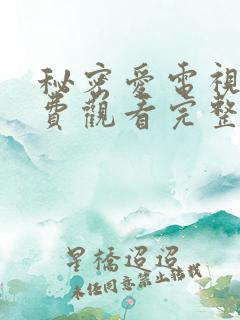 秘密愛電視
費觀看完整
星橋迢迢
未经同意禁止转载